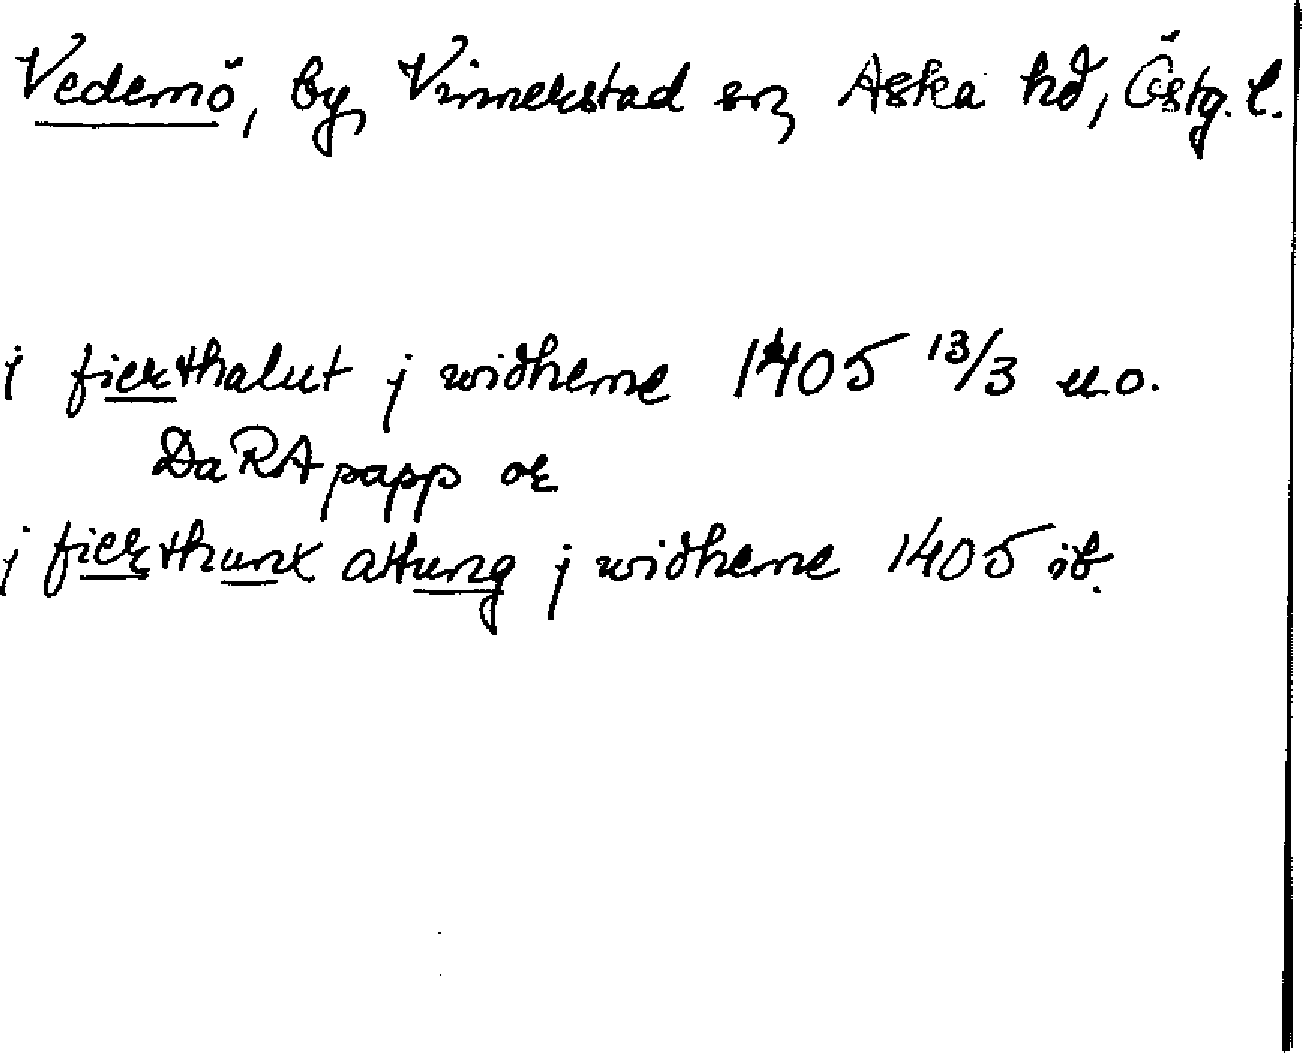 Vedemö, by, Vinnerstad sn, Aska hd, Östg. l.
j fierthalut j widheme 1405 13/3 u.o.
DaRA papp or
j fierthunx attung j widheme 1405 ib.